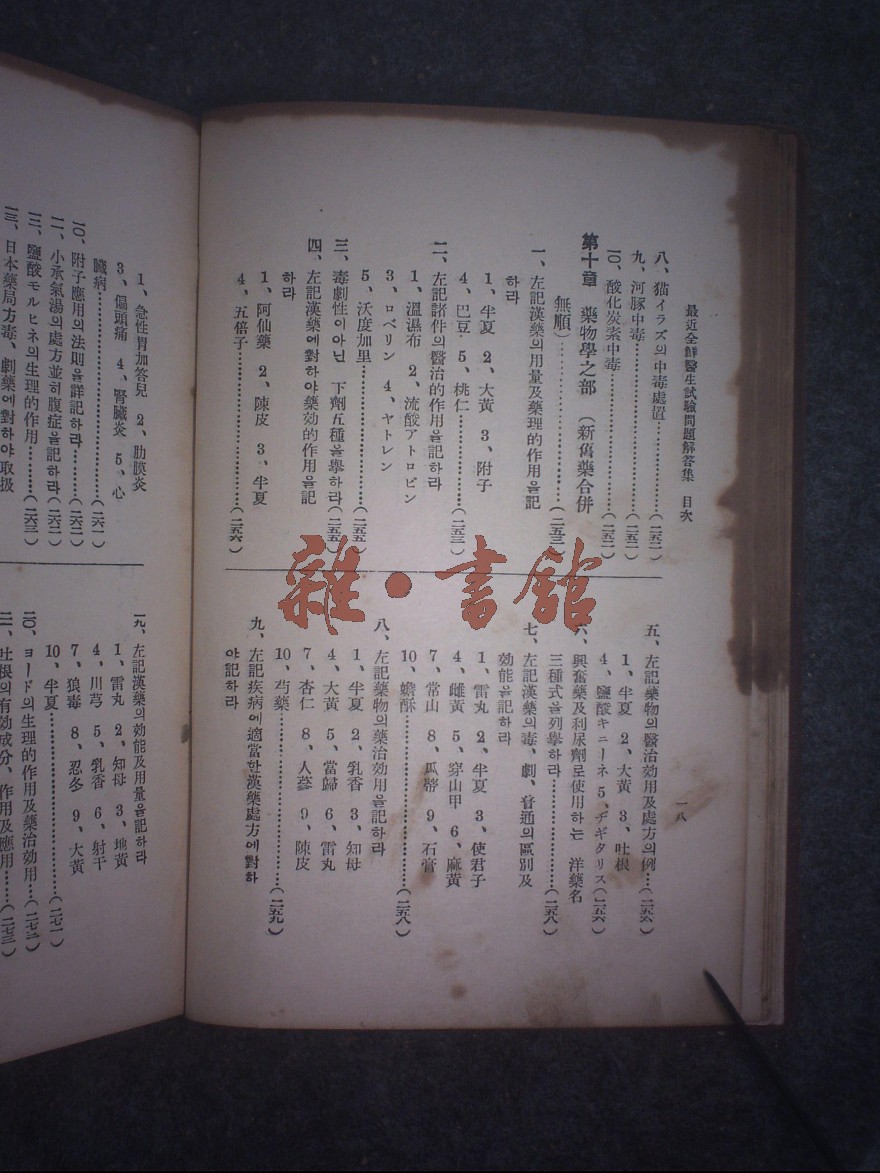 最近全鮮醫生試驗問題解答集 目次
一八
八、猫イラズの中毒處置…………(二五二)
九、河豚中毒…………(二五二)
一〇、酸化炭素中毒…………(二五二)
第十章 藥物學之部 (新舊藥合併
無順)…………(二五三)
一、左記漢藥의用量及藥理的作用을記
하라
1、半夏 2、大黃 3、附子
4、巴豆 5、桃仁…………(二五三)
二、左記諸件의醫治的作用을記하라
1、溫濕布 2、流酸アトロピン
3、ロベリン 4、ヤトレン
5、沃度加里…………(二五五)
三、毒劇性이아닌 下劑五種을擧하라(二五五)
四、左記漢藥에對하야藥効的作用을記
하라
1、阿仙藥 2、陳皮 3、半夏
4、五倍子…………(二五六)
五、左記藥物의醫治効用及處方의例…(二五六)
1、半夏 2、大黃 3、吐根
4、鹽酸キニーネ 5、ヂギタリス(二五六)
六、興奮藥及利尿劑로使用하는 洋藥名
三種式을列擧하라…………(二五八)
七、左記漢藥의毒、劇、普通의區別及
効能을記하라
1、雷丸 2、半夏 3、使君子
4、雌黃 5、穿山甲 6、麻黃
7、常山 8、瓜蔕 9、石膏
10、蟾酥…………(二五八)
八、左記藥物의藥治効用을記하라
1、半夏 2、乳香 3、知母
4、大黃 5、當歸 6、雷丸
7、杏仁 8、人蔘 9、陳皮
10、芍藥…………(二五九)
九、左記疾病에適當한漢藥處方에對하
야記하라
1、急性胃加答兒 2、肋膜炎
3、偏頭痛 4、腎臟炎 5、心
臟病…………(二六一)
一〇、附子應用의法則을詳記하라……(二六二)
一一、小承氣湯의處方並히腹症을記하라(二六二)
一二、鹽酸モルヒネ의生理的作用……(二六三)
一三、日本藥局方毒、劇藥에對하야取扱
一九、左記漢藥의効能及用量을記하라
1、雷丸 2、知母 3、地黃
4、川芎 5、乳香 6、射干
7、狼毒 8、忍冬 9、大黃
10、半夏…………(二七一)
二〇、ヨード의生理的作用及藥治効用…(二七二)
二一、吐根의有効成分、作用及應用……(二七三)
雜·書館